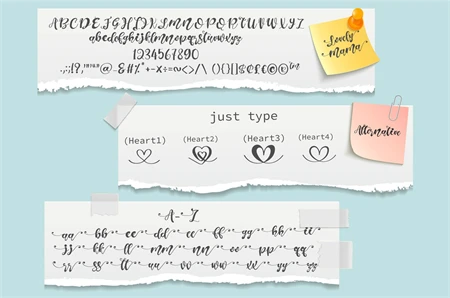 ABCDEFGHIJKLMNOPQRSTUVWXYZ
abcdefghijklmnopqrstuvwxyz
1234567890
Lovely
mama
just type
(Heart1) (Heart2) (Heart3) (Heart4)
Alternative
A-Z
aa bb cc dd ee ff gg hh ii
jj kk ll mm nn oo pp qq
rr ss tt uu vv ww xx yy zz